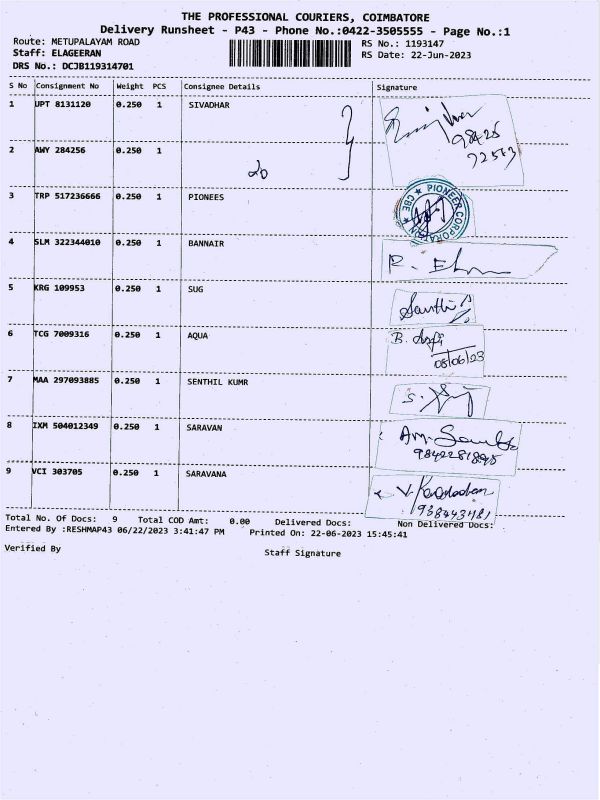 THE PROFESSIONAL COURIERS, COIMBATORE
Delivery Runsheet - P43 - Phone No.:0422-3505555 - Page No.:1
Route: METUPALAYAM ROAD RS No.: 1193147
Staff: ELAGEERAN RS Date: 22-Jun-2023
DRS No.: DCJB119314701
S No Consignment No Weight PCS Consignee Details Signature
1 UPT 8131120 0.250 1 SIVADHAR
98425
72513
2 AWY 284256 0.250 1
3 TRP 517236666 0.250 1 PIONEES
PIONEER CORPORATION CBE
4 SLM 322344010 0.250 1 BANNAIR
5 KRG 109953 0.250 1 SUG
6 TCG 7009316 0.250 1 AQUA
08/06/23
7 MAA 297093885 0.250 1 SENTHIL KUMR
8 IXM 504012349 0.250 1 SARAVAN
9842281895
9 VCI 303705 0.250 1 SARAVANA
Total No. Of Docs: 9 Total COD Amt: 0.00 Delivered Docs: Non Delivered Docs:
Entered By :RESHMAP43 06/22/2023 3:41:47 PM Printed On: 22-06-2023 15:45:41
Verified By Staff Signature